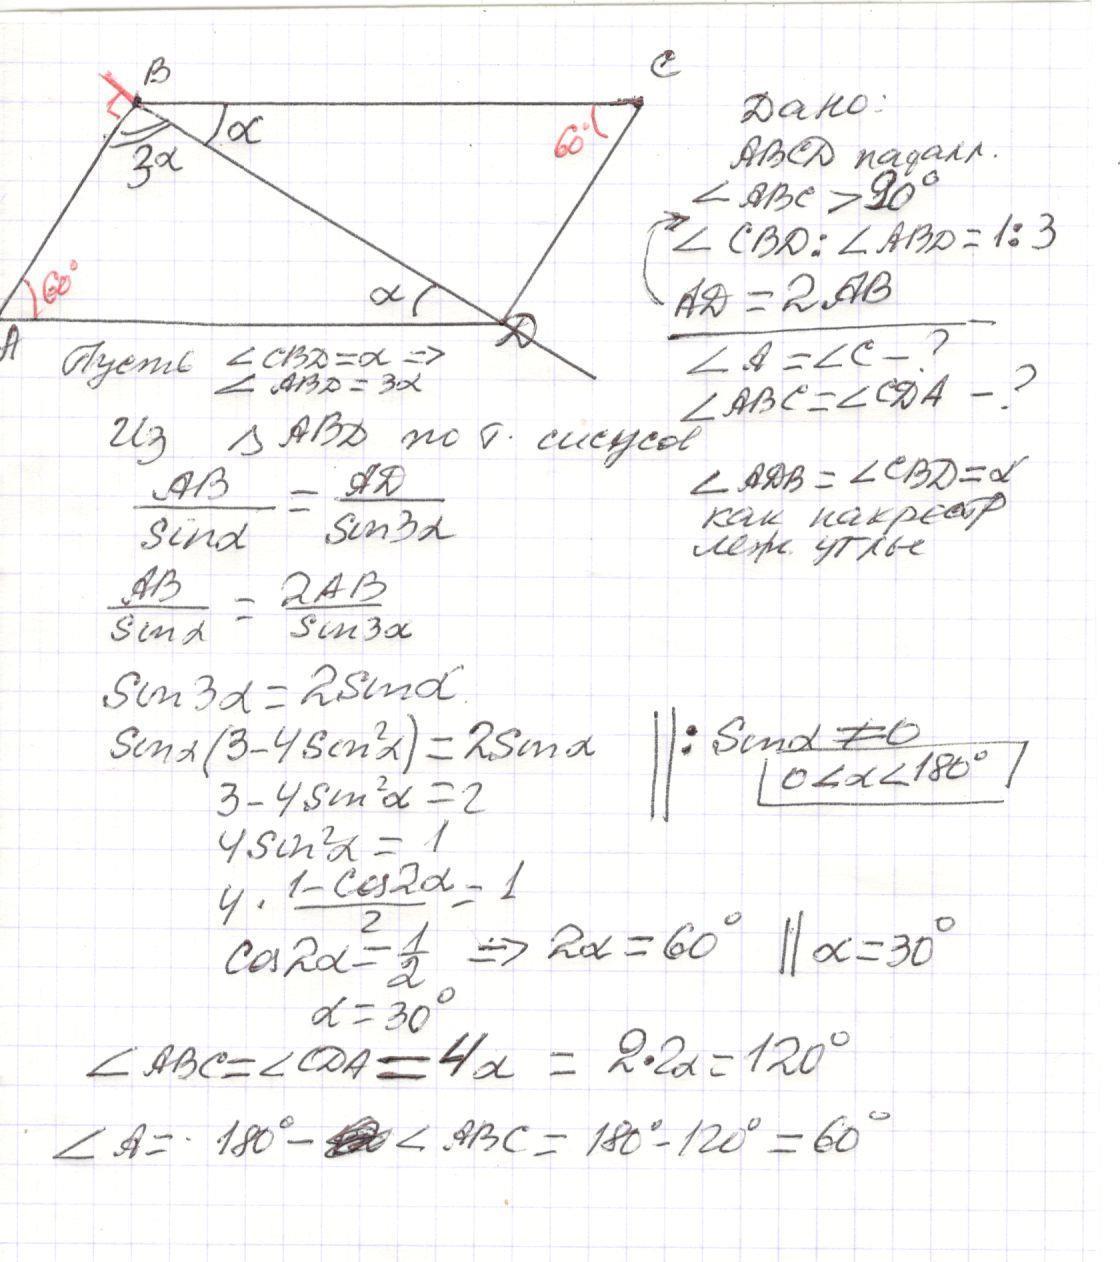 B
C
α
3α
60°
60°
α
A
D
Дано:
ABCD паралл.
∠ABC > 90°
∠CBD : ∠ABD = 1:3
AD = 2AB
∠A = ∠C - ?
∠ABC = ∠CDA - ?
Пусть ∠CBD = α =>
∠ABD = 3α
Из △ABD по т. синусов
AB/sinα = AD/sin3α
∠ADB = ∠CBD = α
как накрест
леж. углы
AB/sinα = 2AB/sin3α
sin3α = 2sinα
sinα(3-4sin²α) = 2sinα ||: sinα ≠ 0
0<α<180°
3-4sin²α = 2
4sin²α = 1
4 · (1-cos2α)/2 = 1
cos2α = 1/2 => 2α = 60° || α = 30°
α = 30°
∠ABC = ∠CDA = 4α = 2·2α = 120°
∠A = 180° - ∠ABC = 180° - 120° = 60°